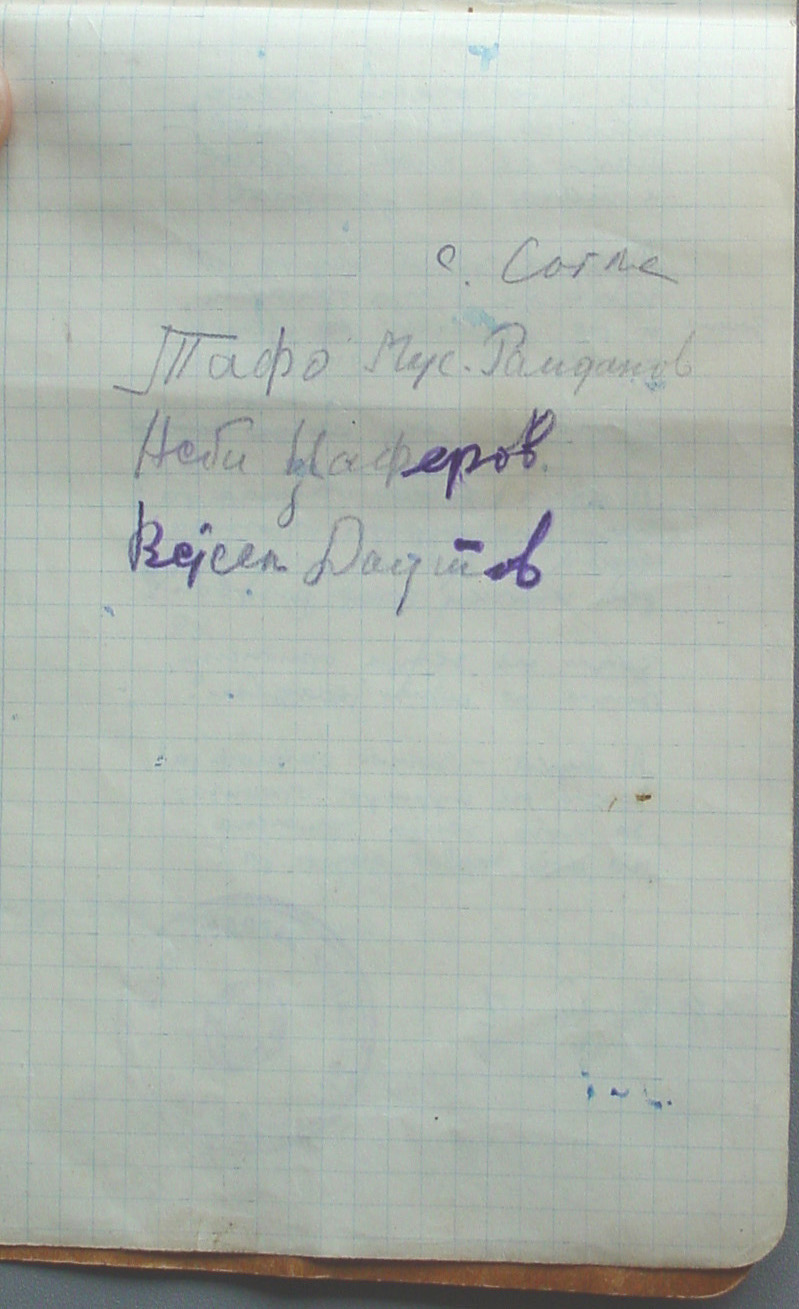 с. Согле
Тафо Мус. Рамданов
Неби Џаферов
Вејсел Даутов